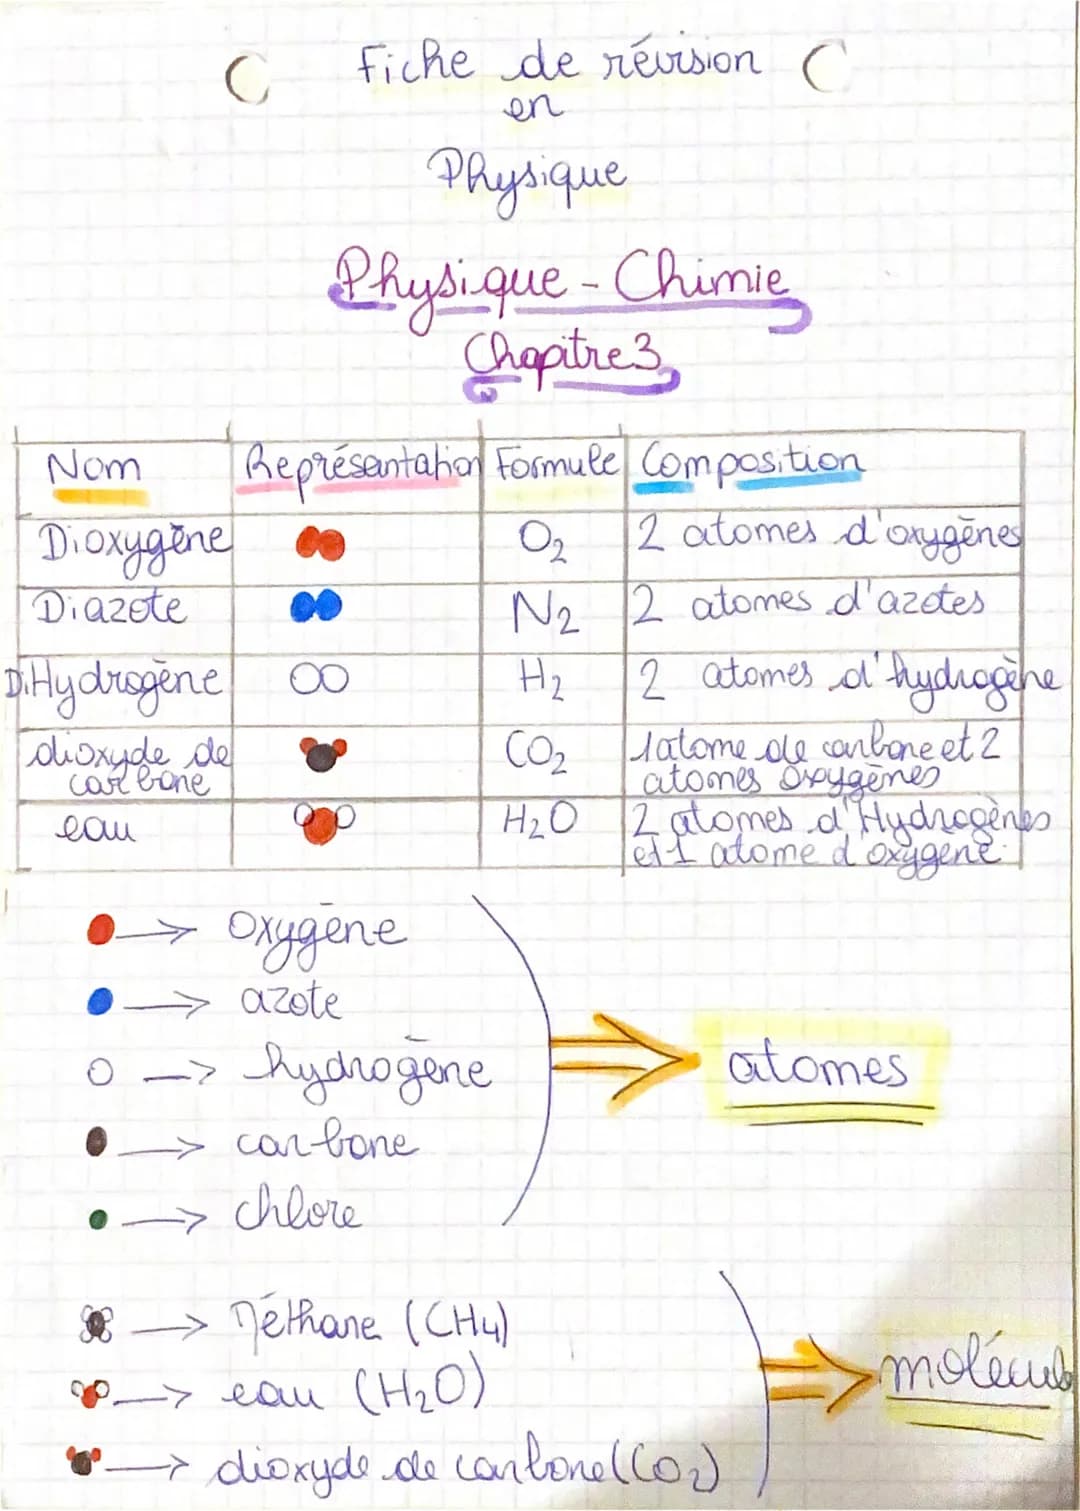 Fiche de révision
en
Physique
Physique - Chimie
Chapitre 3
Nom Représentation Formule Composition
Dioxygène O₂ 2 atomes d'oxygènes
Diazote N₂ 2 atomes d'azotes
DiHydrogène H₂ 2 atomes d'hydrogène
dioxyde de carbone CO₂ 1 atome de carbone et 2
atomes oxygènes
eau H₂O 2 atomes d'Hydrogènes
et 1 atome d'oxygène.
→ Oxygène
→ azote
→ hydrogène
→ carbone
→ chlore
atomes
→ Méthane (CH4)
→ eau (H₂O)
→ dioxyde de carbone (CO₂)
molécul